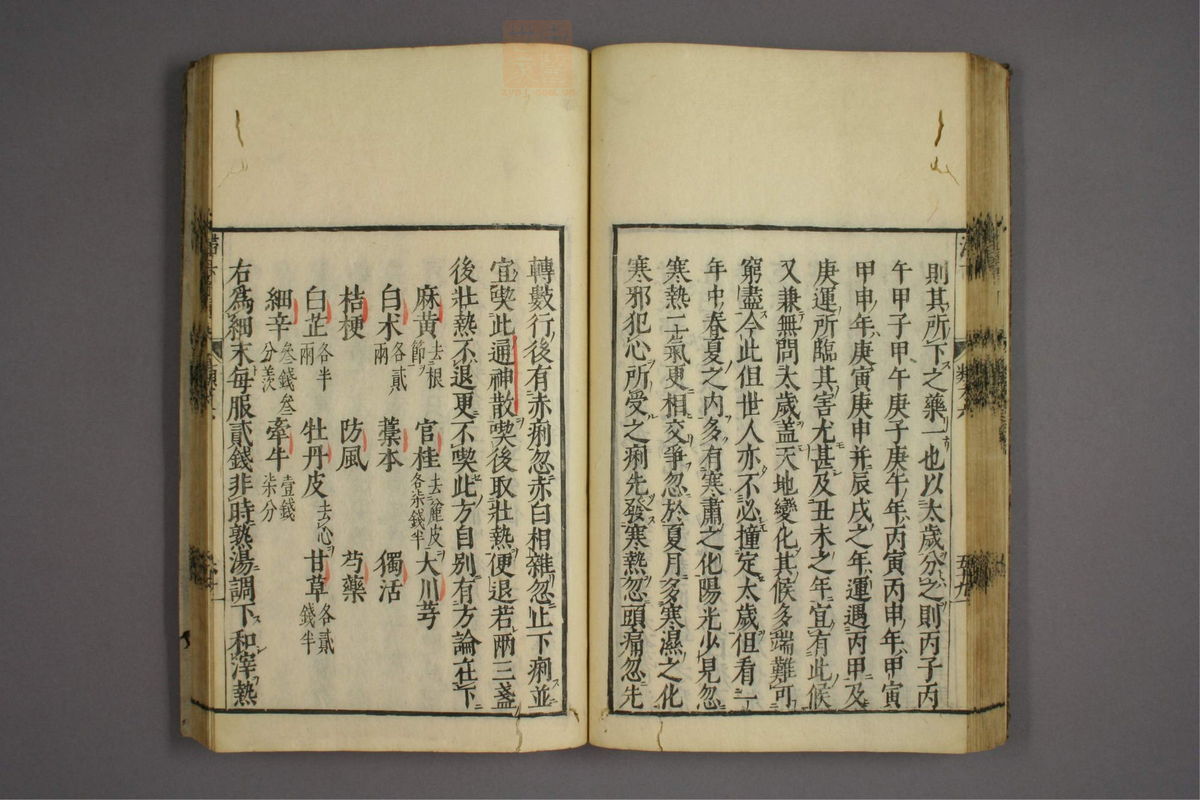 則其所下之藥一也以太歲分之則丙子丙
午甲子甲午庚子庚午年丙寅丙申年甲寅
甲申年庚寅庚申并辰戌之年運遇丙甲及
庚運所臨其害尤甚及丑未之年宜有此候
又兼無問太歲盖天地變化其候多端難可
窮盡今此但世人亦不必撞定太歲但看一
年中春夏之内多有寒肅之化陽光少見忽
寒熱二氣更相交爭忽於夏月多寒濕之化
寒邪犯心所受之痢先發寒熱忽頭痛忽先
轉數行後有赤痢忽赤白相雜忽止下痢並
宜喫此通神散喫後取壮熱便退若兩三盞
後壮熱不退更不喫此方自別有方論在下
麻黃去根節 官桂去麄皮各柒錢半 大川芎
白木各貳兩 藁本 獨活
桔梗 防風 芍藥
白芷各半兩 牡丹皮去心 甘草各貳錢半
細辛叁錢叁分 牽牛壹錢柒分
右為細末每服貳錢非時熟湯調下和滓熱